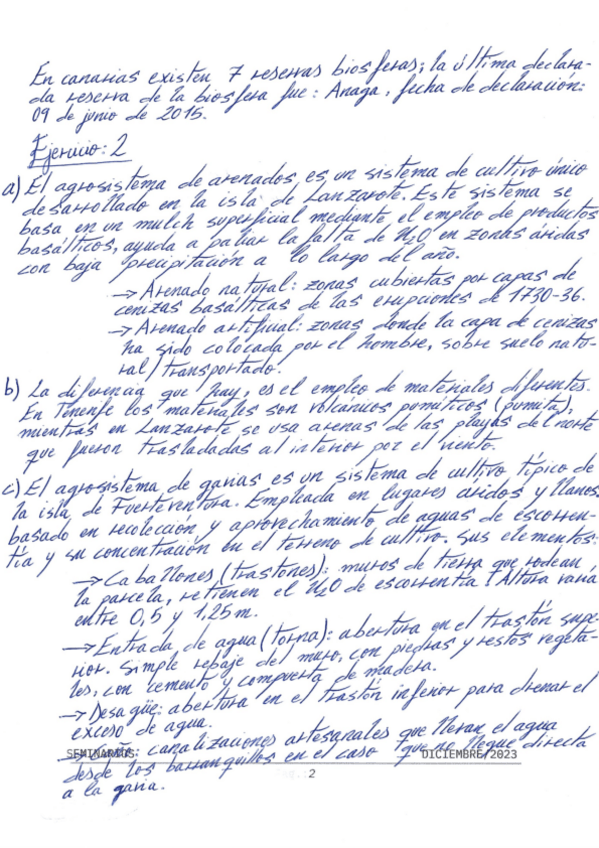 En canarias existen 7 reservas biosferas; la última declara-
da reserva de la biosfera fue: Anaga, fecha de declaración:
09 de junio de 2015.
Ejercicio: 2
a) El agrosistema de arenados es un sistema de cultivo único
desarrollado en la isla de Lanzarote. Este sistema se
basa en un mulch superficial mediante el empleo de productos
basálticos, ayuda a paliar la falta de H₂O en zonas áridas
con baja precipitación a lo largo del año.
→ Arenado natural: zonas cubiertas por capas de
cenizas basálticas de las erupciones de 1730-36.
→ Arenado artificial: zonas donde la capa de cenizas
ha sido colocada por el hombre, sobre suelo natu-
ral/transportado.
b) La diferencia que hay, es el empleo de materiales diferentes.
En Tenerife los materiales son volcánicos pumíticos (pumita),
mientras en Lanzarote se usa arenas de las playas del norte
que fueron trasladadas al interior por el viento.
c) El agrosistema de gavias es un sistema de cultivo típico de
la isla de Fuerteventura. Empleada en lugares áridos y llanos
basado en recolección y aprovechamiento de aguas de escorren-
tía y su concentración en el terreno de cultivo. Sus elementos:
→ Caballones (trastones): muros de tierra que rodean
la parcela, retienen el H₂O de escorrentía. Altura varía
entre 0,5 y 1,25 m.
→ Entrada de agua (torna): abertura en el trastón supe-
rior. Simple rebaje del muro, con piedras y restos vegeta-
les, con cemento y compuerta de madera.
→ Desagüe: abertura en el trastón inferior para drenar el
exceso de agua.
canalizaciones artesanales que llevan el agua
SEMINARIOS DICIEMBRE/2023
desde los barranquillos en el caso que no llegue directa
2
a la gavia.